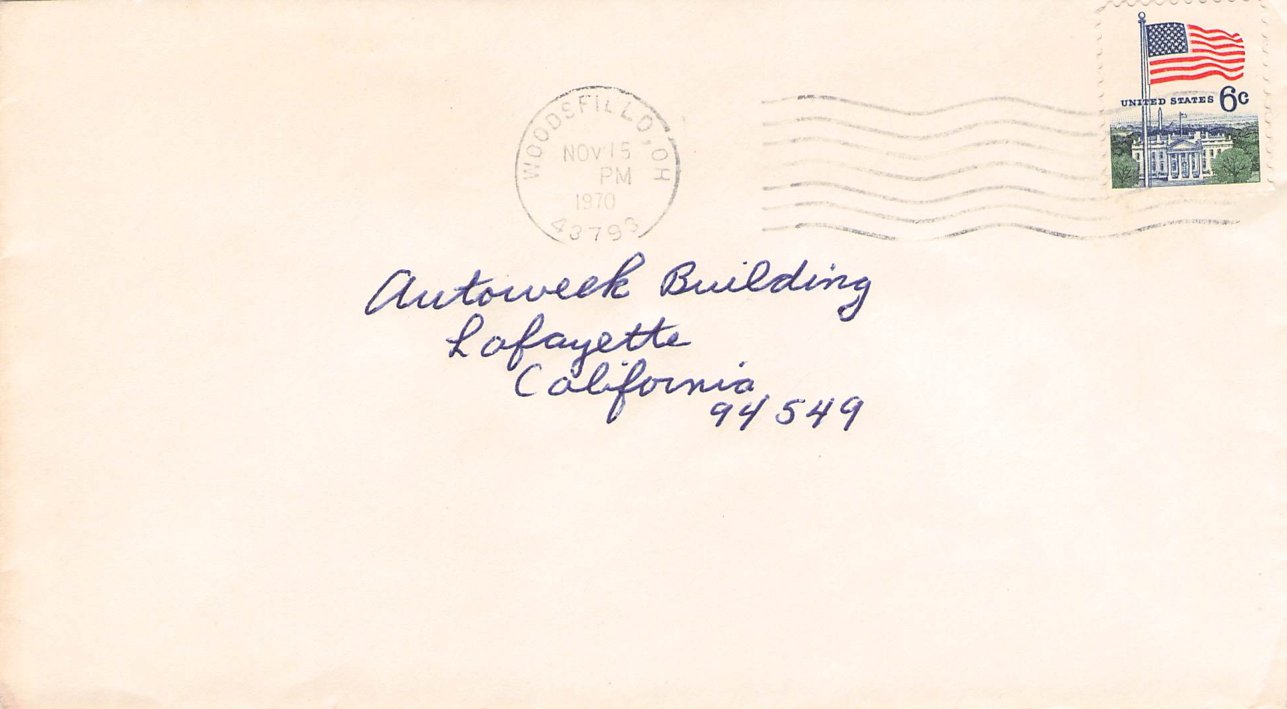 UNITED STATES 6c
WOODSFILLD, OH
NOV 15
PM
1970
43793
Autoweek Building
Lafayette
California
94549